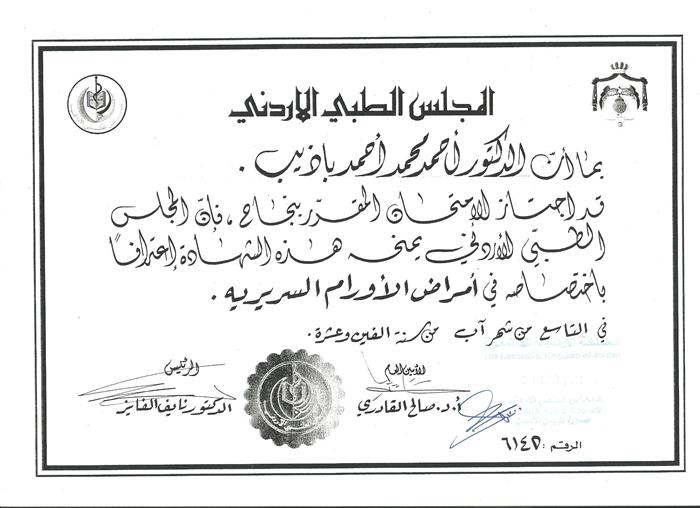 المجلس الطبي الاردني
بما أن الدكتور أحمد محمد أحمد باذيب .
قد اجتاز الامتحان المقرر بنجاح ، فإن المجلس
الطبي الأردني يمنحه هذه الشهادة إعترافاً
باختصاصه في أمراض الأورام السريريه .
في التاسع من شهر آب من سنة الفين وعشرة .
الرئيس
الأمين العام
الدكتور نايف الفايز
أ.د. صالح القادري
الرقم : ٦١٤٢